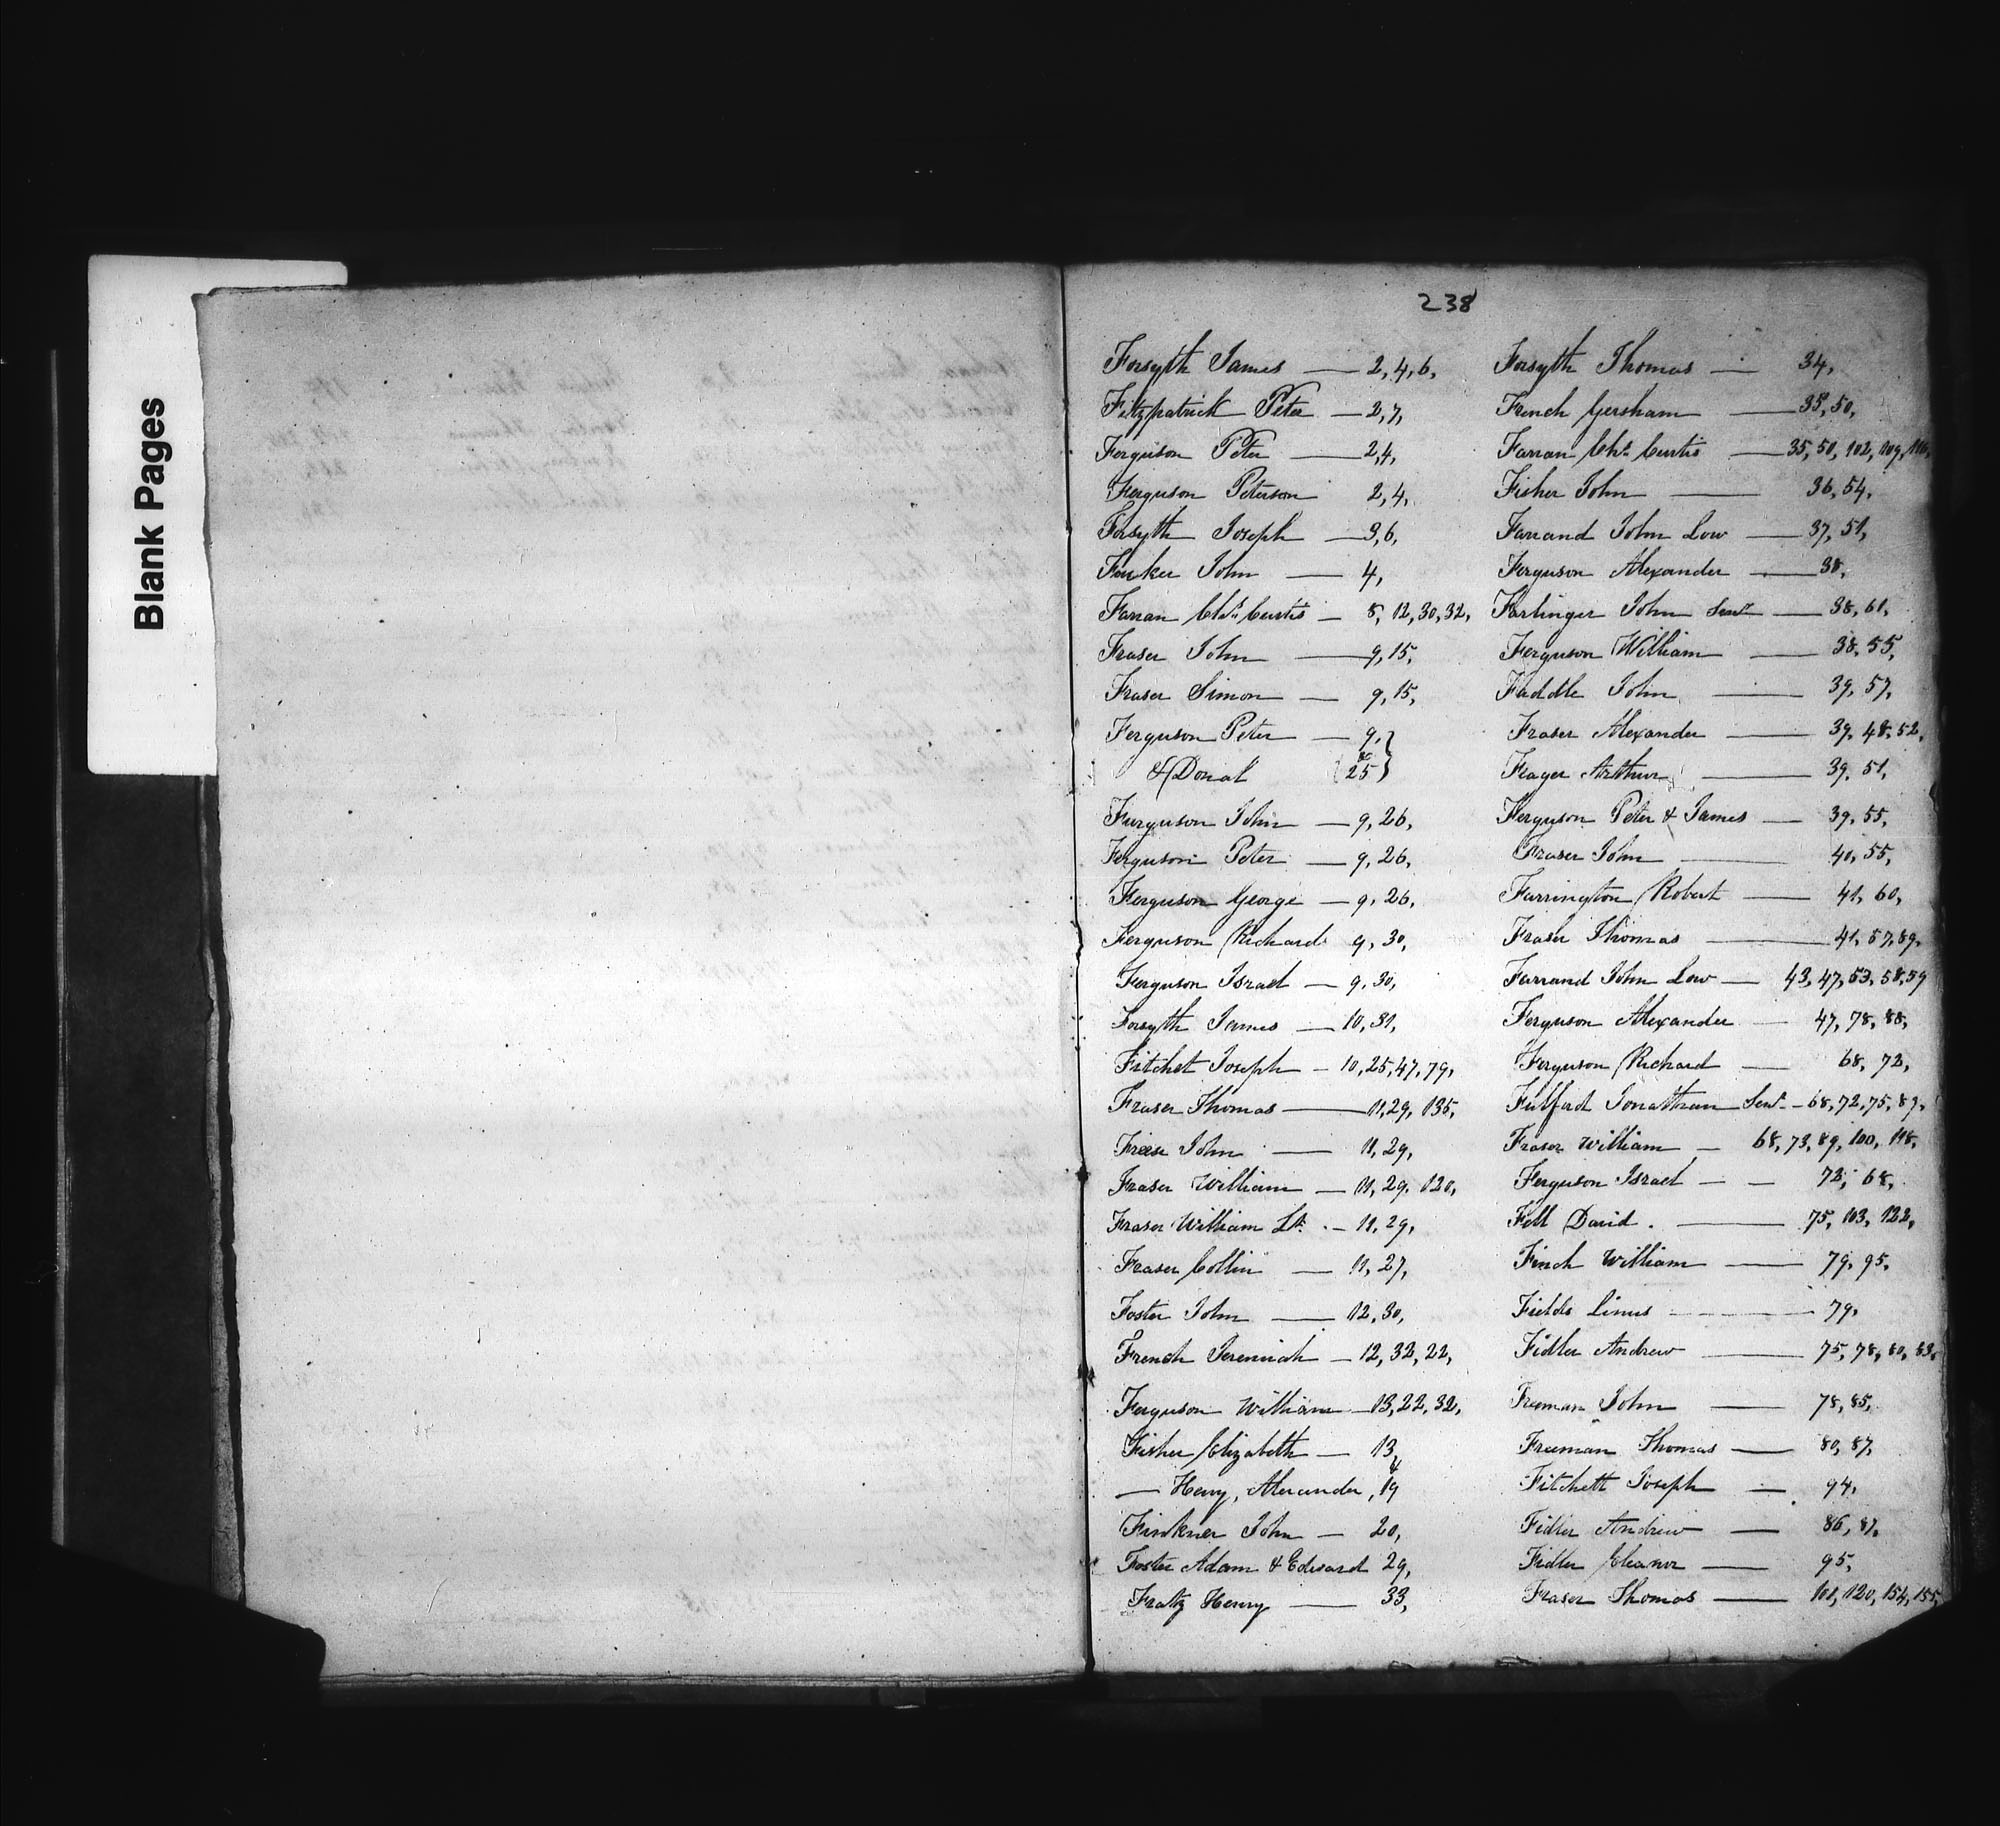 Blank Pages
238
Forsyth James — 2, 4, 6,
Fitzpatrick Peter — 2, 7,
Ferguson Peter — 2, 4,
Ferguson Peterson 2, 4,
Forsyth Joseph — 3, 6,
John — 4,
Farran Chs. Curtis — 8, 12, 30, 32,
Fraser John — 9, 15,
Fraser Simon — 9, 15,
Ferguson Peter — 9, }
& Donal 25 }
Furguson John — 9, 26,
Ferguson Peter — 9, 26,
Ferguson George — 9, 26,
Ferguson Richard 9, 30,
Ferguson Israel — 9, 30,
Forsyth James — 10, 31,
Fitchet Joseph — 10, 25, 47, 79,
Fraser Thomas — 11, 29, 135,
Freese John — 11, 29,
Fraser William — 11, 29, 120,
Fraser William Lt. — 11, 29,
Fraser Collin — 11, 27,
Foster John — 12, 30,
French Jeremiah — 12, 32, 22,
Ferguson William — 13, 22, 32,
Fisher Elizabeth — 13, &
— Henry, Alexander, 19
Finkner John — 20,
Foster Adam & Edward 29,
Fratz Henry — 33,
Forsyth Thomas — 34,
French Gersham — 35, 50,
Farran Chs. Curtis — 35, 50, 102, 109, 116,
Fisher John — 36, 54,
Farrand John Low — 37, 51,
Ferguson Alexander — 38,
Farlinger John Senr. — 38, 61,
Ferguson William — 38, 55,
Faddle John — 39, 57,
Fraser Alexander — 39, 48, 52,
Arthur — 39, 51,
Ferguson Peter & James — 39, 55,
Fraser John — 40, 55,
Farrington Robert — 41, 60,
Fraser Thomas — 41, 57, 89,
Farrand John Low — 43, 47, 53, 58, 59
Ferguson Alexander — 47, 78, 88,
Ferguson Richard — 68, 72,
Fulford Jonathan Senr. — 68, 72, 75, 89,
Fraser William — 68, 73, 89, 100, 118,
Ferguson Israel — 72, 68,
Fell David — 75, 103, 122,
Finch William — 79, 95,
Fields Linus — 79,
Fidler Andrew — 75, 78, 80, 83,
Freeman John — 78, 85,
Freeman Thomas — 80, 87,
Fitchett Joseph — 94,
Fidler Andrew — 86, 87,
Fidler Eleanor — 95,
Fraser Thomas — 101, 120, 154, 155,